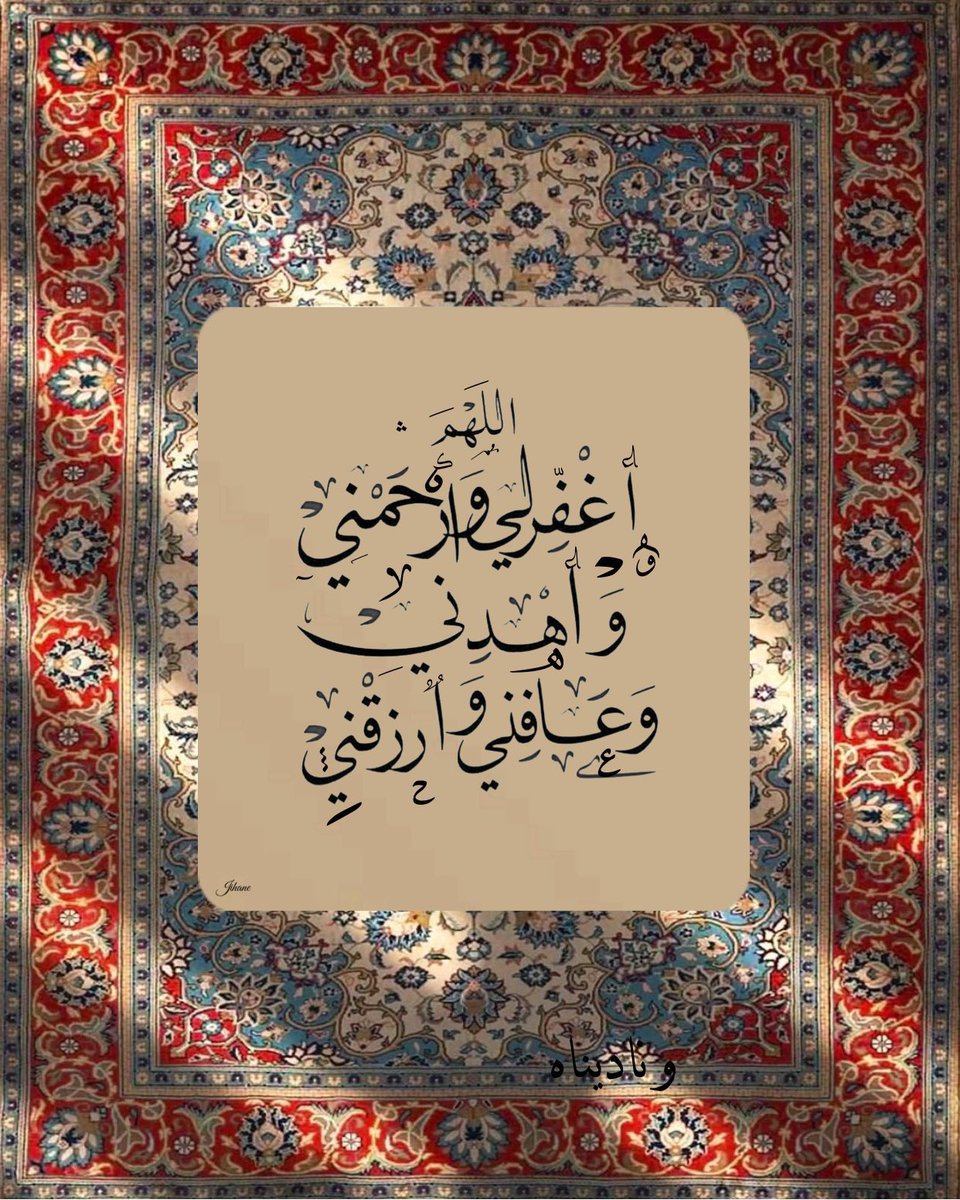 اللَهْمَ
أغْفِّرلي وَارْحَمْني
وَأهْدِني
وَعَافِني وَارزقْني
Jihane
وناديناه